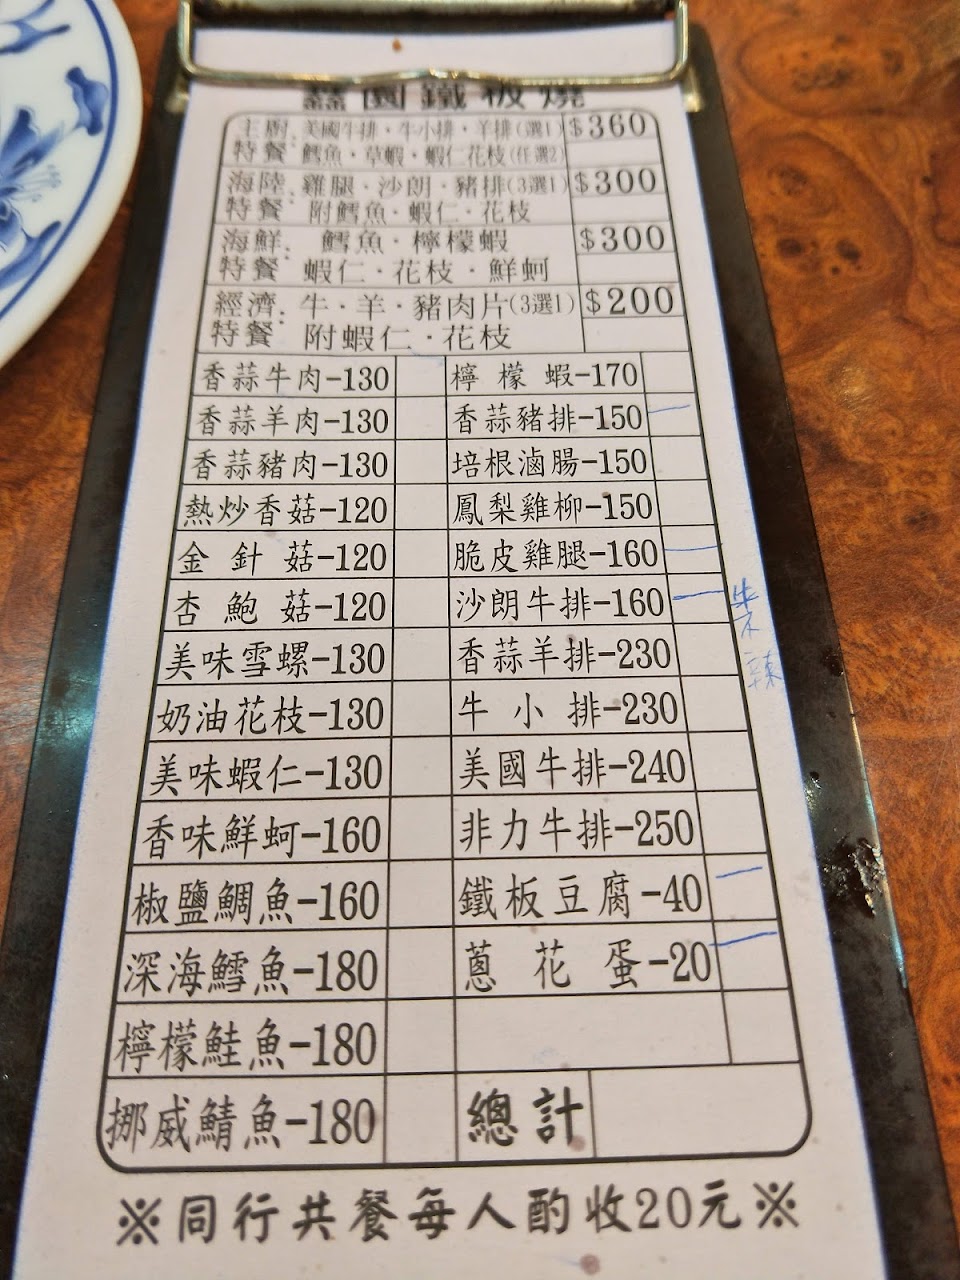 園鐵板燒
主廚、美國牛排·牛小排·羊排(選1) $360
特餐 鱈魚·草蝦·蝦仁花枝(任選2)
海陸、雞腿·沙朗·豬排(3選1) $300
特餐 附鱈魚·蝦仁·花枝
海鮮、鱈魚·檸檬蝦 $300
特餐 蝦仁·花枝·鮮蚵
經濟、牛·羊·豬肉片(3選1) $200
特餐 附蝦仁·花枝
香蒜牛肉-130 檸檬蝦-170
香蒜羊肉-130 香蒜豬排-150
香蒜豬肉-130 培根滷腸-150
熱炒香菇-120 鳳梨雞柳-150
金針菇-120 脆皮雞腿-160
杏鮑菇-120 沙朗牛排-160
美味雪螺-130 香蒜羊排-230
奶油花枝-130 牛小排-230
美味蝦仁-130 美國牛排-240
香味鮮蚵-160 非力牛排-250
椒鹽鯛魚-160 鐵板豆腐-40
深海鱈魚-180 蔥花蛋-20
檸檬鮭魚-180
挪威鯖魚-180 總計
※同行共餐每人酌收20元※
辣